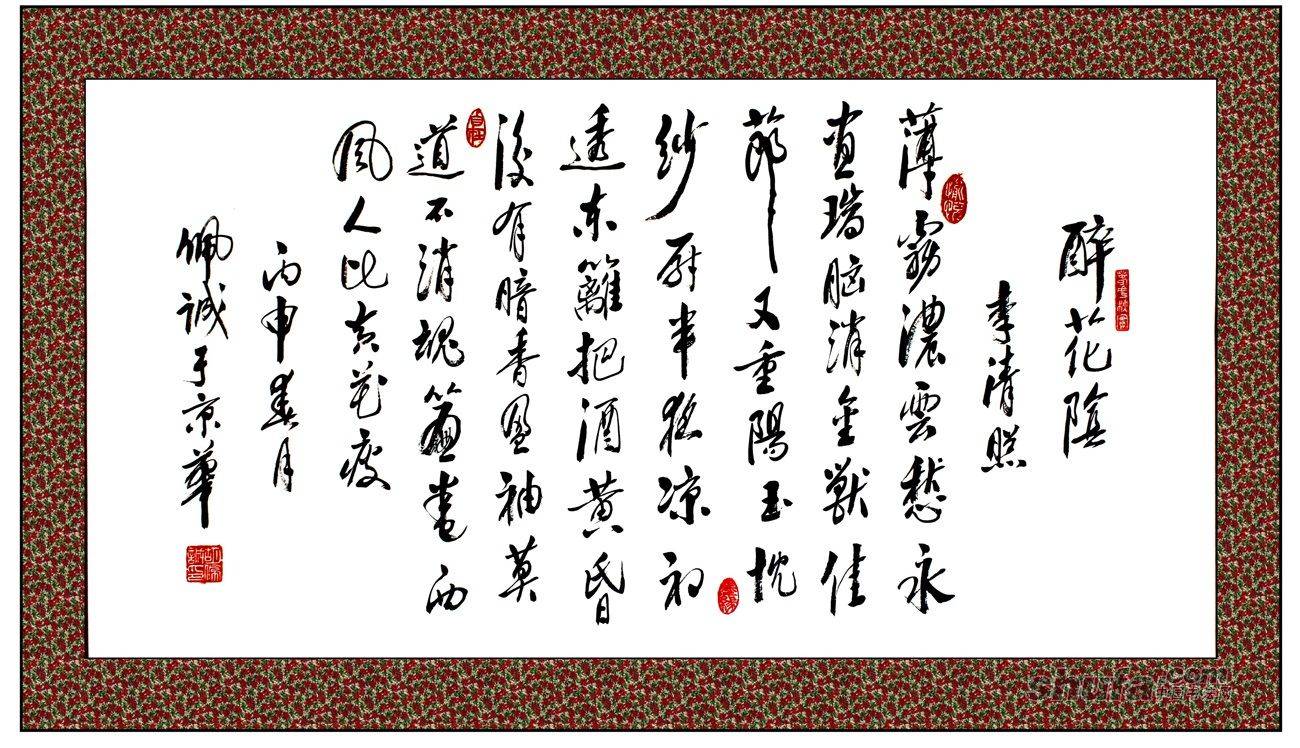 醉花陰
李清照
薄霧濃雲愁永
晝瑞脑消金獸佳
節又重陽玉枕
紗厨半夜凉初
透东籬把酒黄昏
後有暗香盈袖莫
道不消魂簾卷西
風人比黄花瘦
丙申春月
佩诚于京華
shufa.com
中国书法网